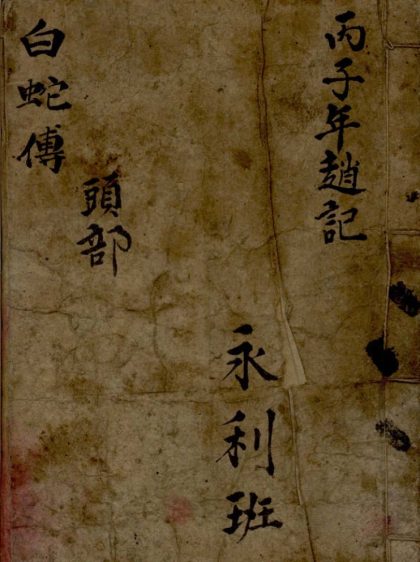 丙子年趙記
永利班
頭部
白蛇傳